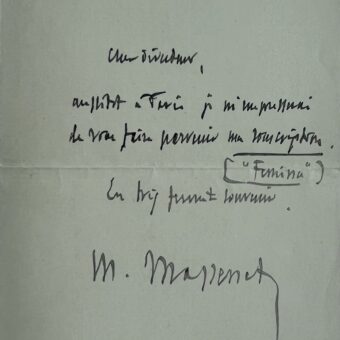 Cher Directeur,
aussitôt à Paris je m'empresserai
de vous faire parvenir ma souscription.
("Femina")
En très fervent souvenir.
M. Massenet